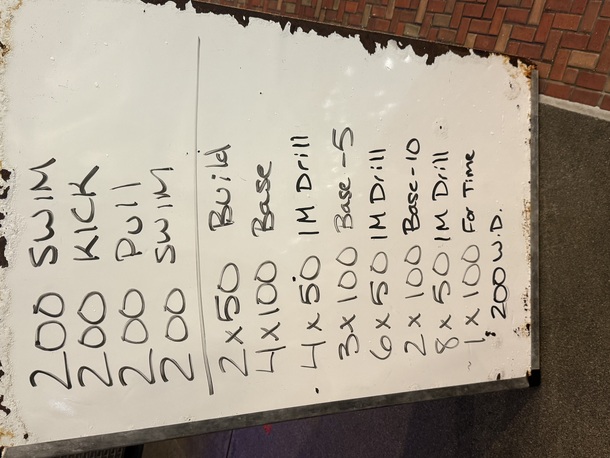 200 SWIM
200 KICK
200 Pull
200 SWIM
2 x 50 Build
4 x 100 Base
4 x 50 IM Drill
3 x 100 Base -5
6 x 50 IM Drill
2 x 100 Base-10
8 x 50 IM Drill
1 x 100 For Time
200 W.D.